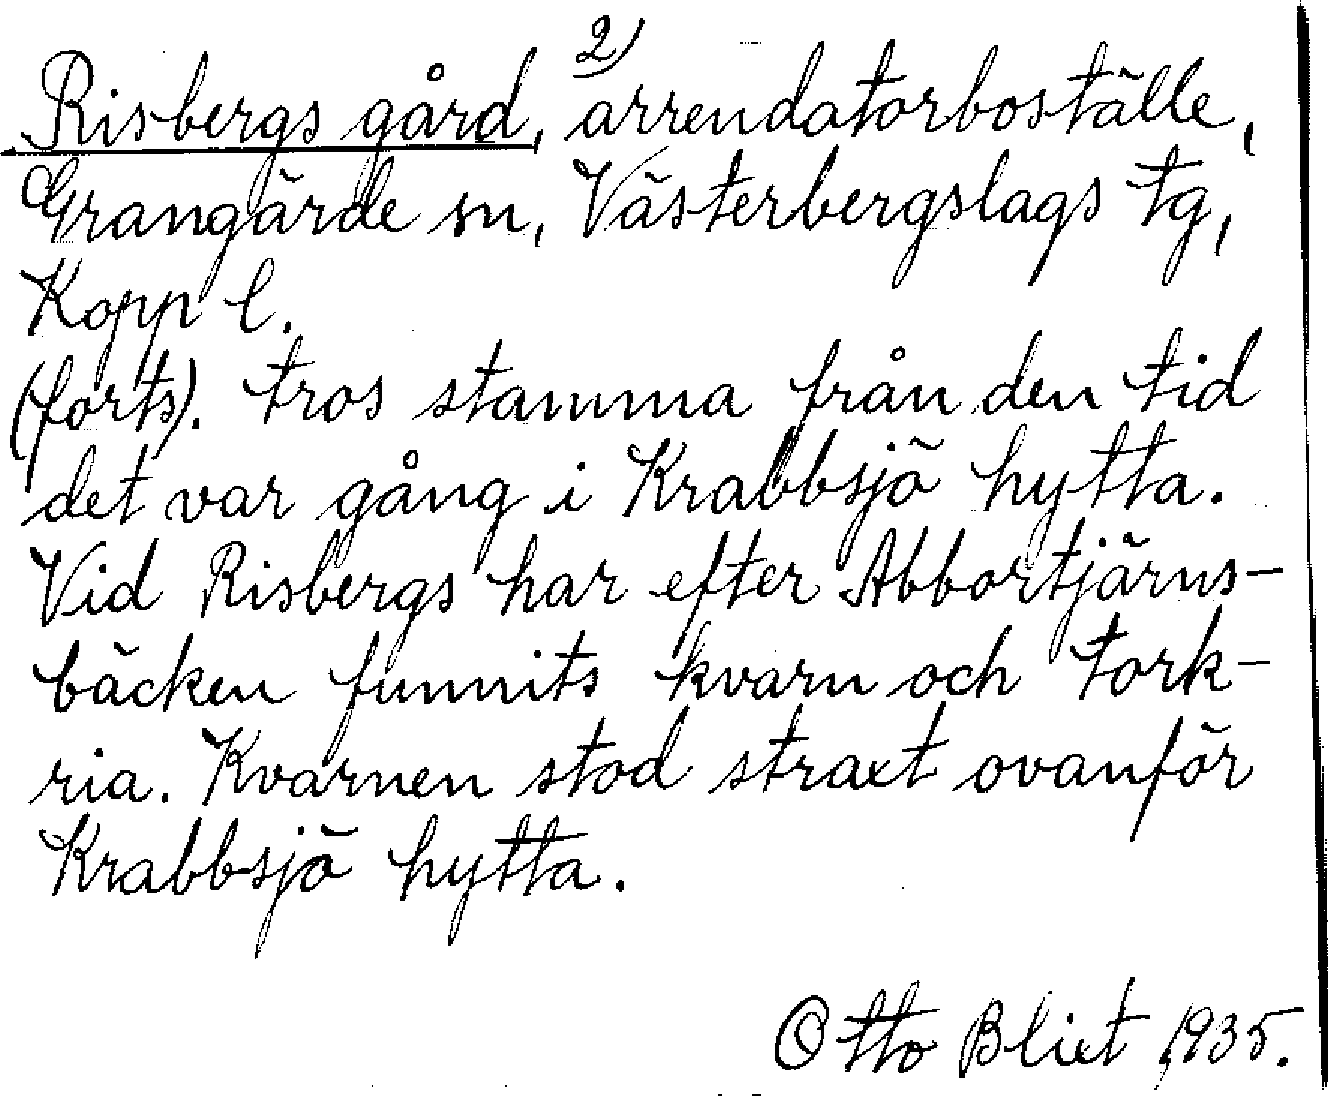 2)
Risbergs gård, arrendatorboställe,
Grangärde sn, Västerbergslags tg,
Kopp l.
(forts). tros stamma från den tid
det var gång i Krabbsjö hytta.
Vid Risbergs har efter Abbortjärns-
bäcken funnits kvarn och tork-
ria. Kvarnen stod straxt ovanför
Krabbsjö hytta.
Otto Blixt 1935.